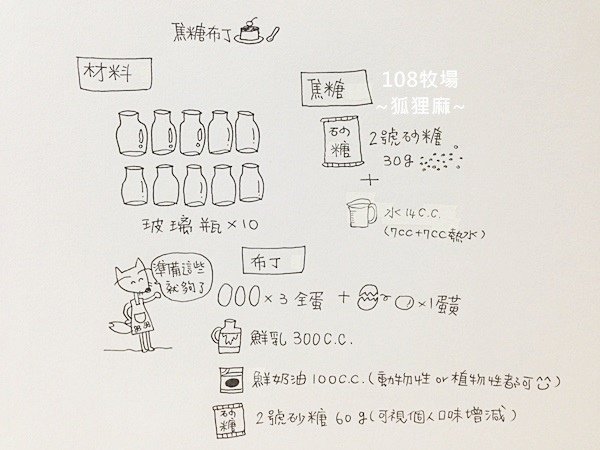 焦糖布丁
材料
玻璃瓶×10
108牧場
~狐狸麻~
焦糖
砂糖
2號砂糖
30g
+
水14C.C.
(7cc+7cc熱水)
準備這些
就夠了
布丁
×3 全蛋 + ×1蛋黃
鮮乳 300C.C.
鮮奶油 100C.C.(動物性 or 植物性都可)
砂糖
2號砂糖 60g(可視個人口味增減)